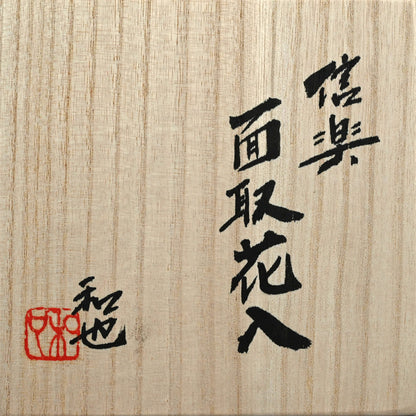 信楽
面取花入
和也